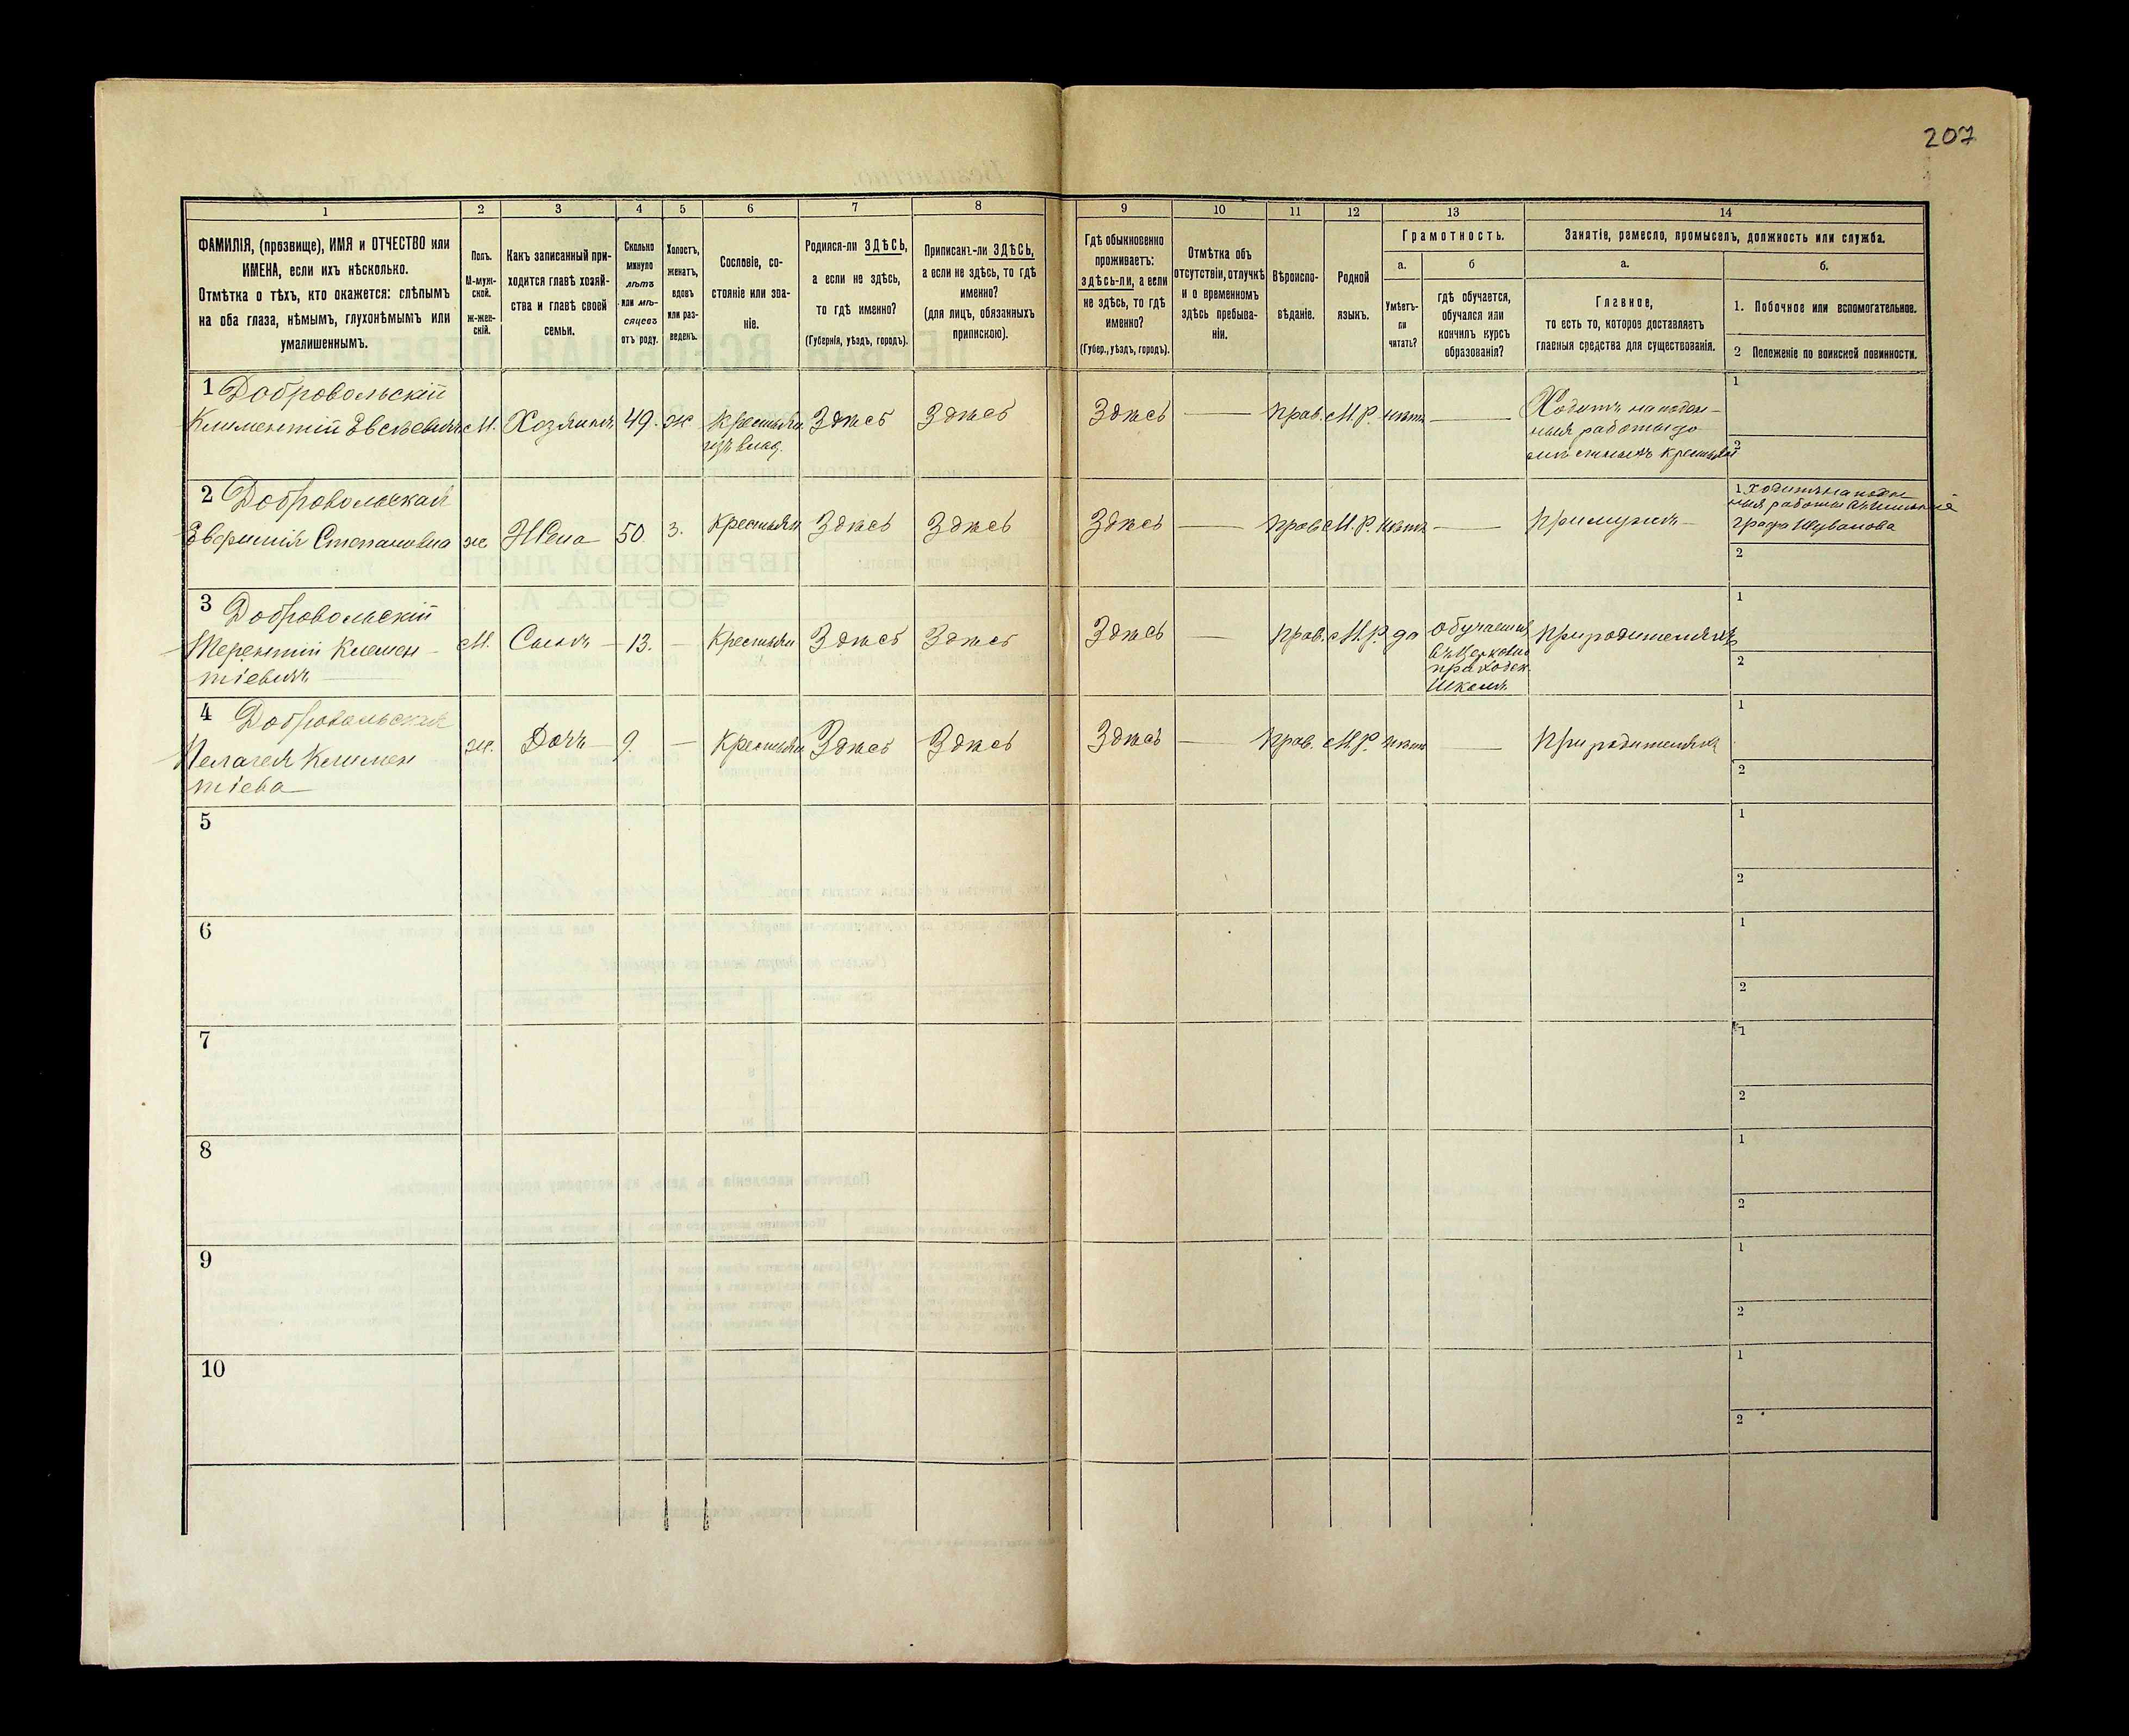 207
1 2 3 4 5 6 7 8 9 10 11 12 13 14
ФАМИЛІЯ, (прозвище), ИМЯ и ОТЧЕСТВО или
ИМЕНА, если ихъ нѣсколько.
Отмѣтка о тѣхъ, кто окажется: слѣпымъ
на оба глаза, нѣмымъ, глухонѣмымъ или
умалишеннымъ.
Полъ.
М-муж-
ской.
ж-жен-
скій.
Какъ записанный при-
ходится главѣ хозяй-
ства и главѣ своей
семьи.
Сколько
минуло
лѣтъ
или мѣ-
сяцевъ
отъ роду.
Холостъ,
женатъ,
вдовъ
или раз-
веденъ.
Сословіе, со-
стояніе или зва-
ніе.
Родился-ли ЗДѢСЬ,
а если не здѣсь,
то гдѣ именно?
(Губернія, уѣздъ, городъ).
Приписанъ-ли ЗДѢСЬ,
а если не здѣсь, то гдѣ
именно?
(для лицъ, обязанныхъ
припискою).
Гдѣ обыкновенно
проживаетъ:
здѣсь-ли, а если
не здѣсь, то гдѣ
именно?
(Губер., уѣздъ, городъ).
Отмѣтка объ
отсутствіи, отлучкѣ
и о временномъ
здѣсь пребыва-
ніи.
Вѣроиспо-
вѣданіе.
Родной
языкъ.
Грамотность.
а.
Умѣетъ-
ли
читать?
б
гдѣ обучается,
обучался или
кончилъ курсъ
образованія?
Занятіе, ремесло, промыселъ, должность или служба.
а.
Главное,
то есть то, которое доставляетъ
главныя средства для существованія.
б.
1. Побочное или вспомогательное.
2 Положеніе по воинской повинности.
1 Добровольскій
Климентій Евсѣевичъ М. Хозяинъ 49. ж Крестьян Здѣсь Здѣсь Здѣсь — прав. М.Р. нѣтъ —
изъ влад.
Ходитъ на поден-
ныя работы до
мѣстныхъ крестьян
1
2
2 Добровольская
Евфимія Степановна ж Жена 50. з. Крестьян Здѣсь Здѣсь Здѣсь — прав М.Р. нѣтъ — При мужѣ
1 Ходитъ на поден
ныя работы въ имѣніе
графа Шувалова
2
3 Добровольскій
Терентій Клемен-
тіевичъ
М. Сынъ — 13. — Крестьян Здѣсь Здѣсь Здѣсь — прав. М.Р. да
Обучается
въ Церковно
приходск.
Школѣ
При родителяхъ
1
2
4 Добровольская
Пелагея Климен
тіева
ж. Дочь — 9. — Крестьян Здѣсь Здѣсь Здѣсь — прав. М.Р. нѣтъ — При родителяхъ
1
2
5
1
2
6
1
2
7
1
2
8
1
2
9
1
2
10
1
2